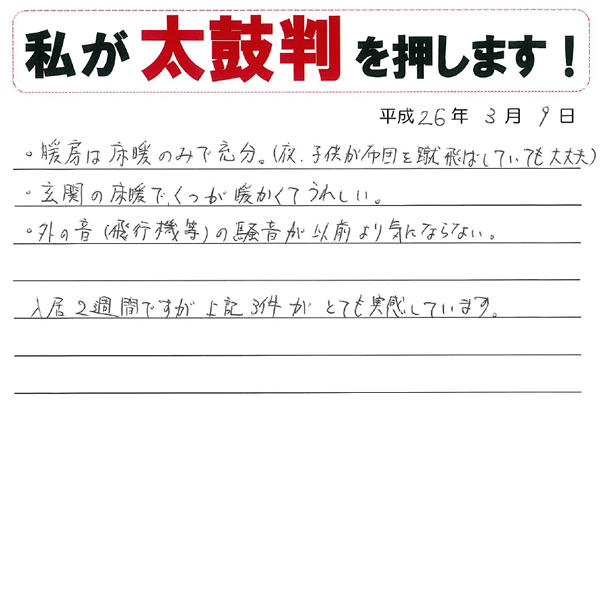 私が太鼓判を押します！
平成26年 3月 9日
・暖房は床暖のみで充分。(夜、子供が布団を蹴飛ばしていても大丈夫)
・玄関の床暖で、くつが暖かくてうれしい。
・外の音(飛行機等)の騒音が以前より気にならない。
入居2週間ですが上記3件がとても実感しています。